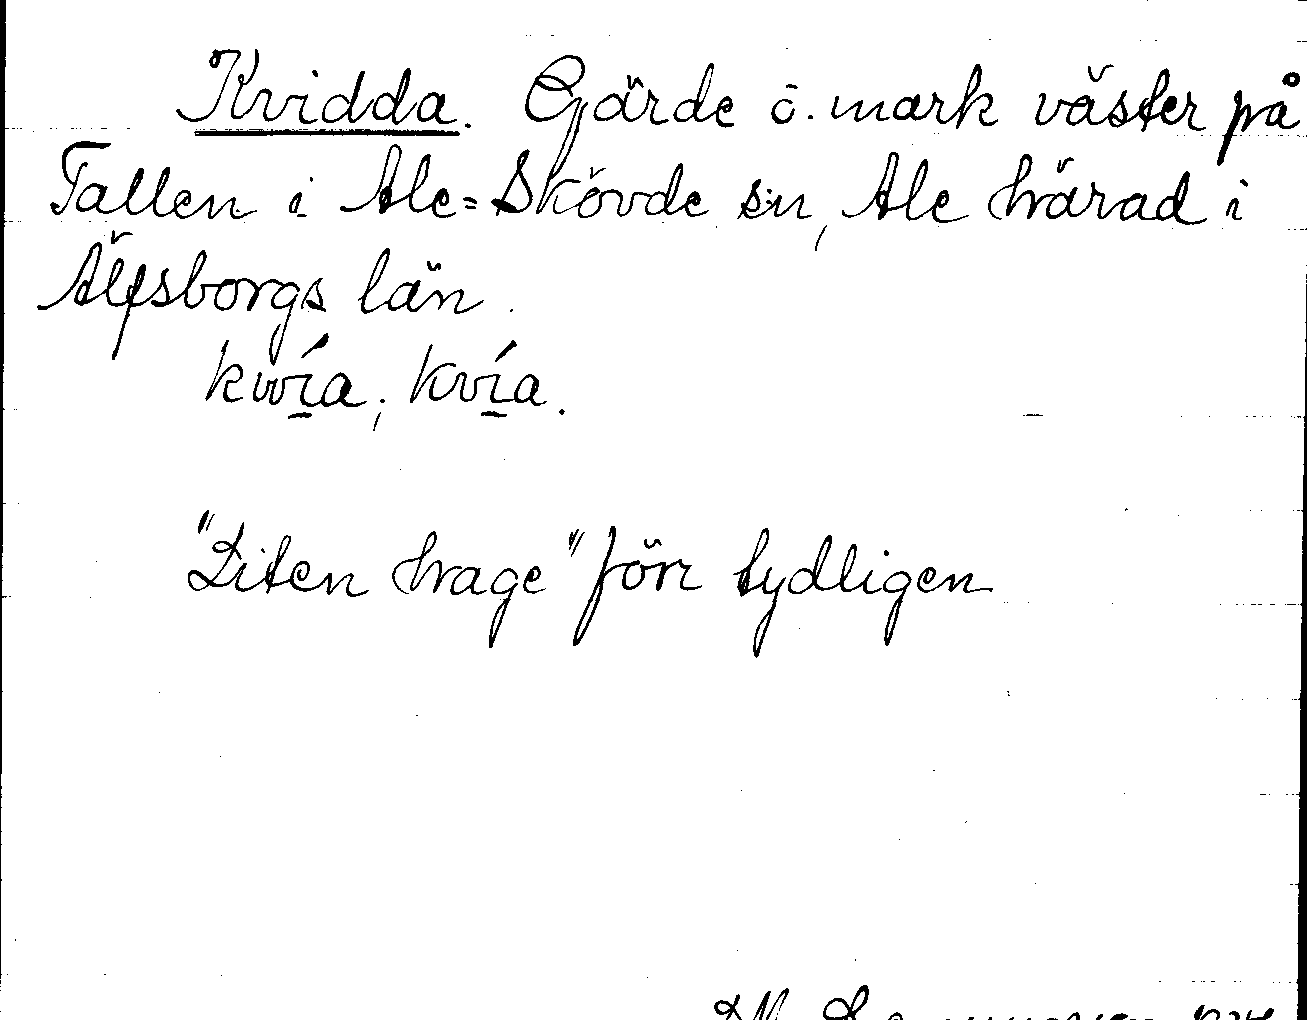 Kvidda. Gärde o. mark väster på
Tallen i Ale-Skövde s:n, Ale härad i
Älfsborgs län.
kwía, kvía.
"Liten hage" förr tydligen